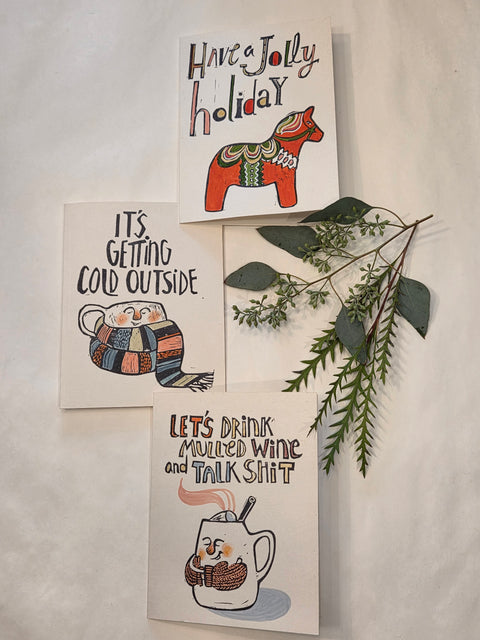 Have a Jolly
holiday
IT'S
GETTING
COLD OUTSIDE
LET'S DRINK
MULLED WINE
and TALK SHIT